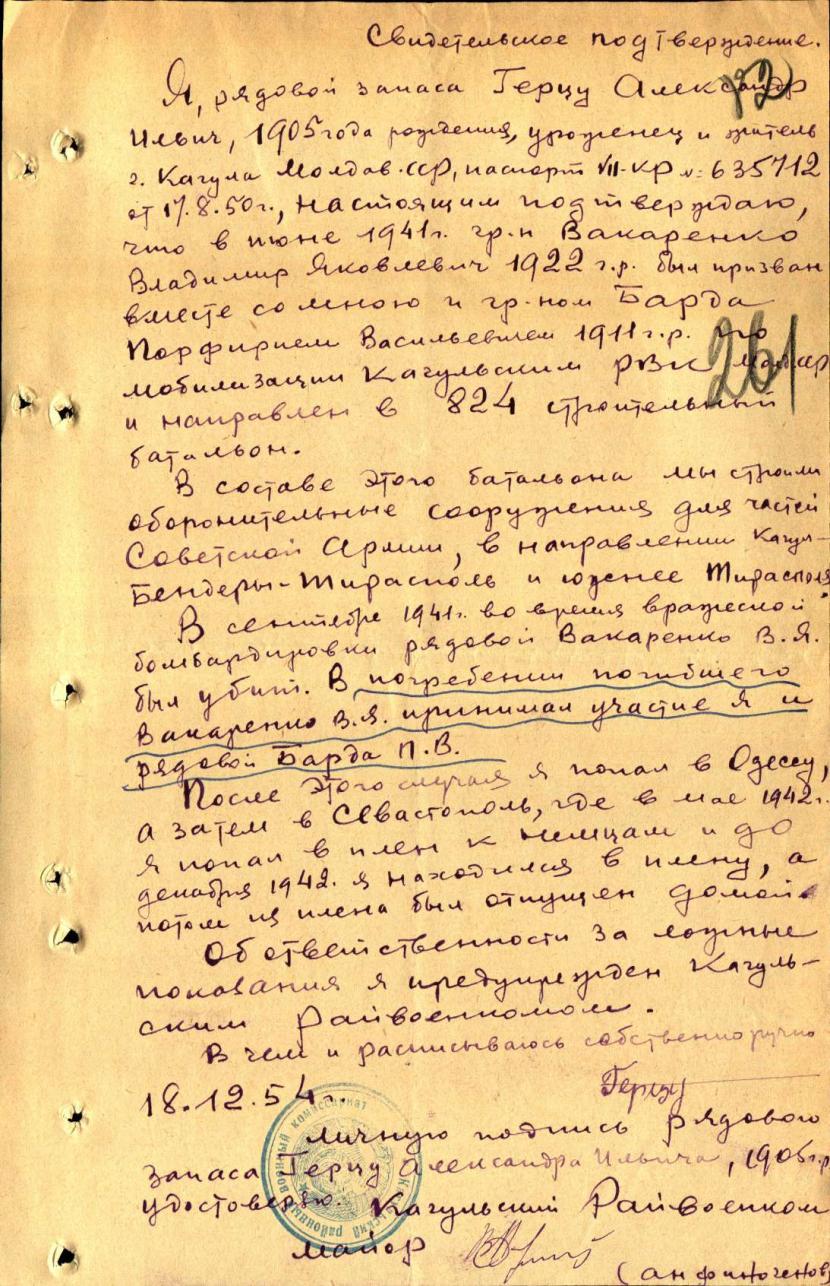 Свидетельское подтверждение.
Я, рядовой запаса Герцу Александр
Ильич, 1905 года рождения, уроженец и житель
г. Кагула Молдав. сср, паспорт VII-КР №: 635712
от 17.8.50 г., настоящим подтверждаю,
что в июне 1941 г. гр-н Вакаренко
Владимир Яковлевич 1922 г.р. был призван
вместе со мною и гр-ном Барда
Порфирием Васильевичем 1911 г.р. по
мобилизации Кагульским РВК Молд. сср
и направлен в 824 строительный
батальон.
В составе этого батальона мы строили
оборонительные сооружения для частей
Советской Армии, в направлении Кагул-
Бендеры-Тирасполь и южнее Тирасполя.
В сентябре 1941 г. во время вражеской
бомбардировки рядовой Вакаренко В.Я.
был убит. В погребении погибшего
Вакаренко В.Я. принимал участие я и
рядовой Барда П.В.
После этого случая я попал в Одессу,
а затем в Севастополь, где в мае 1942 г.
я попал в плен к немцам и до
декабря 1942 г. я находился в плену, а
потом из плена был отпущен домой.
Об ответственности за ложные
показания я предупрежден Кагуль-
ским Райвоенкомом.
В чем и расписываюсь собственноручно
Герцу
18.12.54 г.
личную подпись рядового
запаса Герцу Александра Ильича, 1905 г.р
удостоверяю. Кагульский Райвоенком
майор
(анфиногенов
261